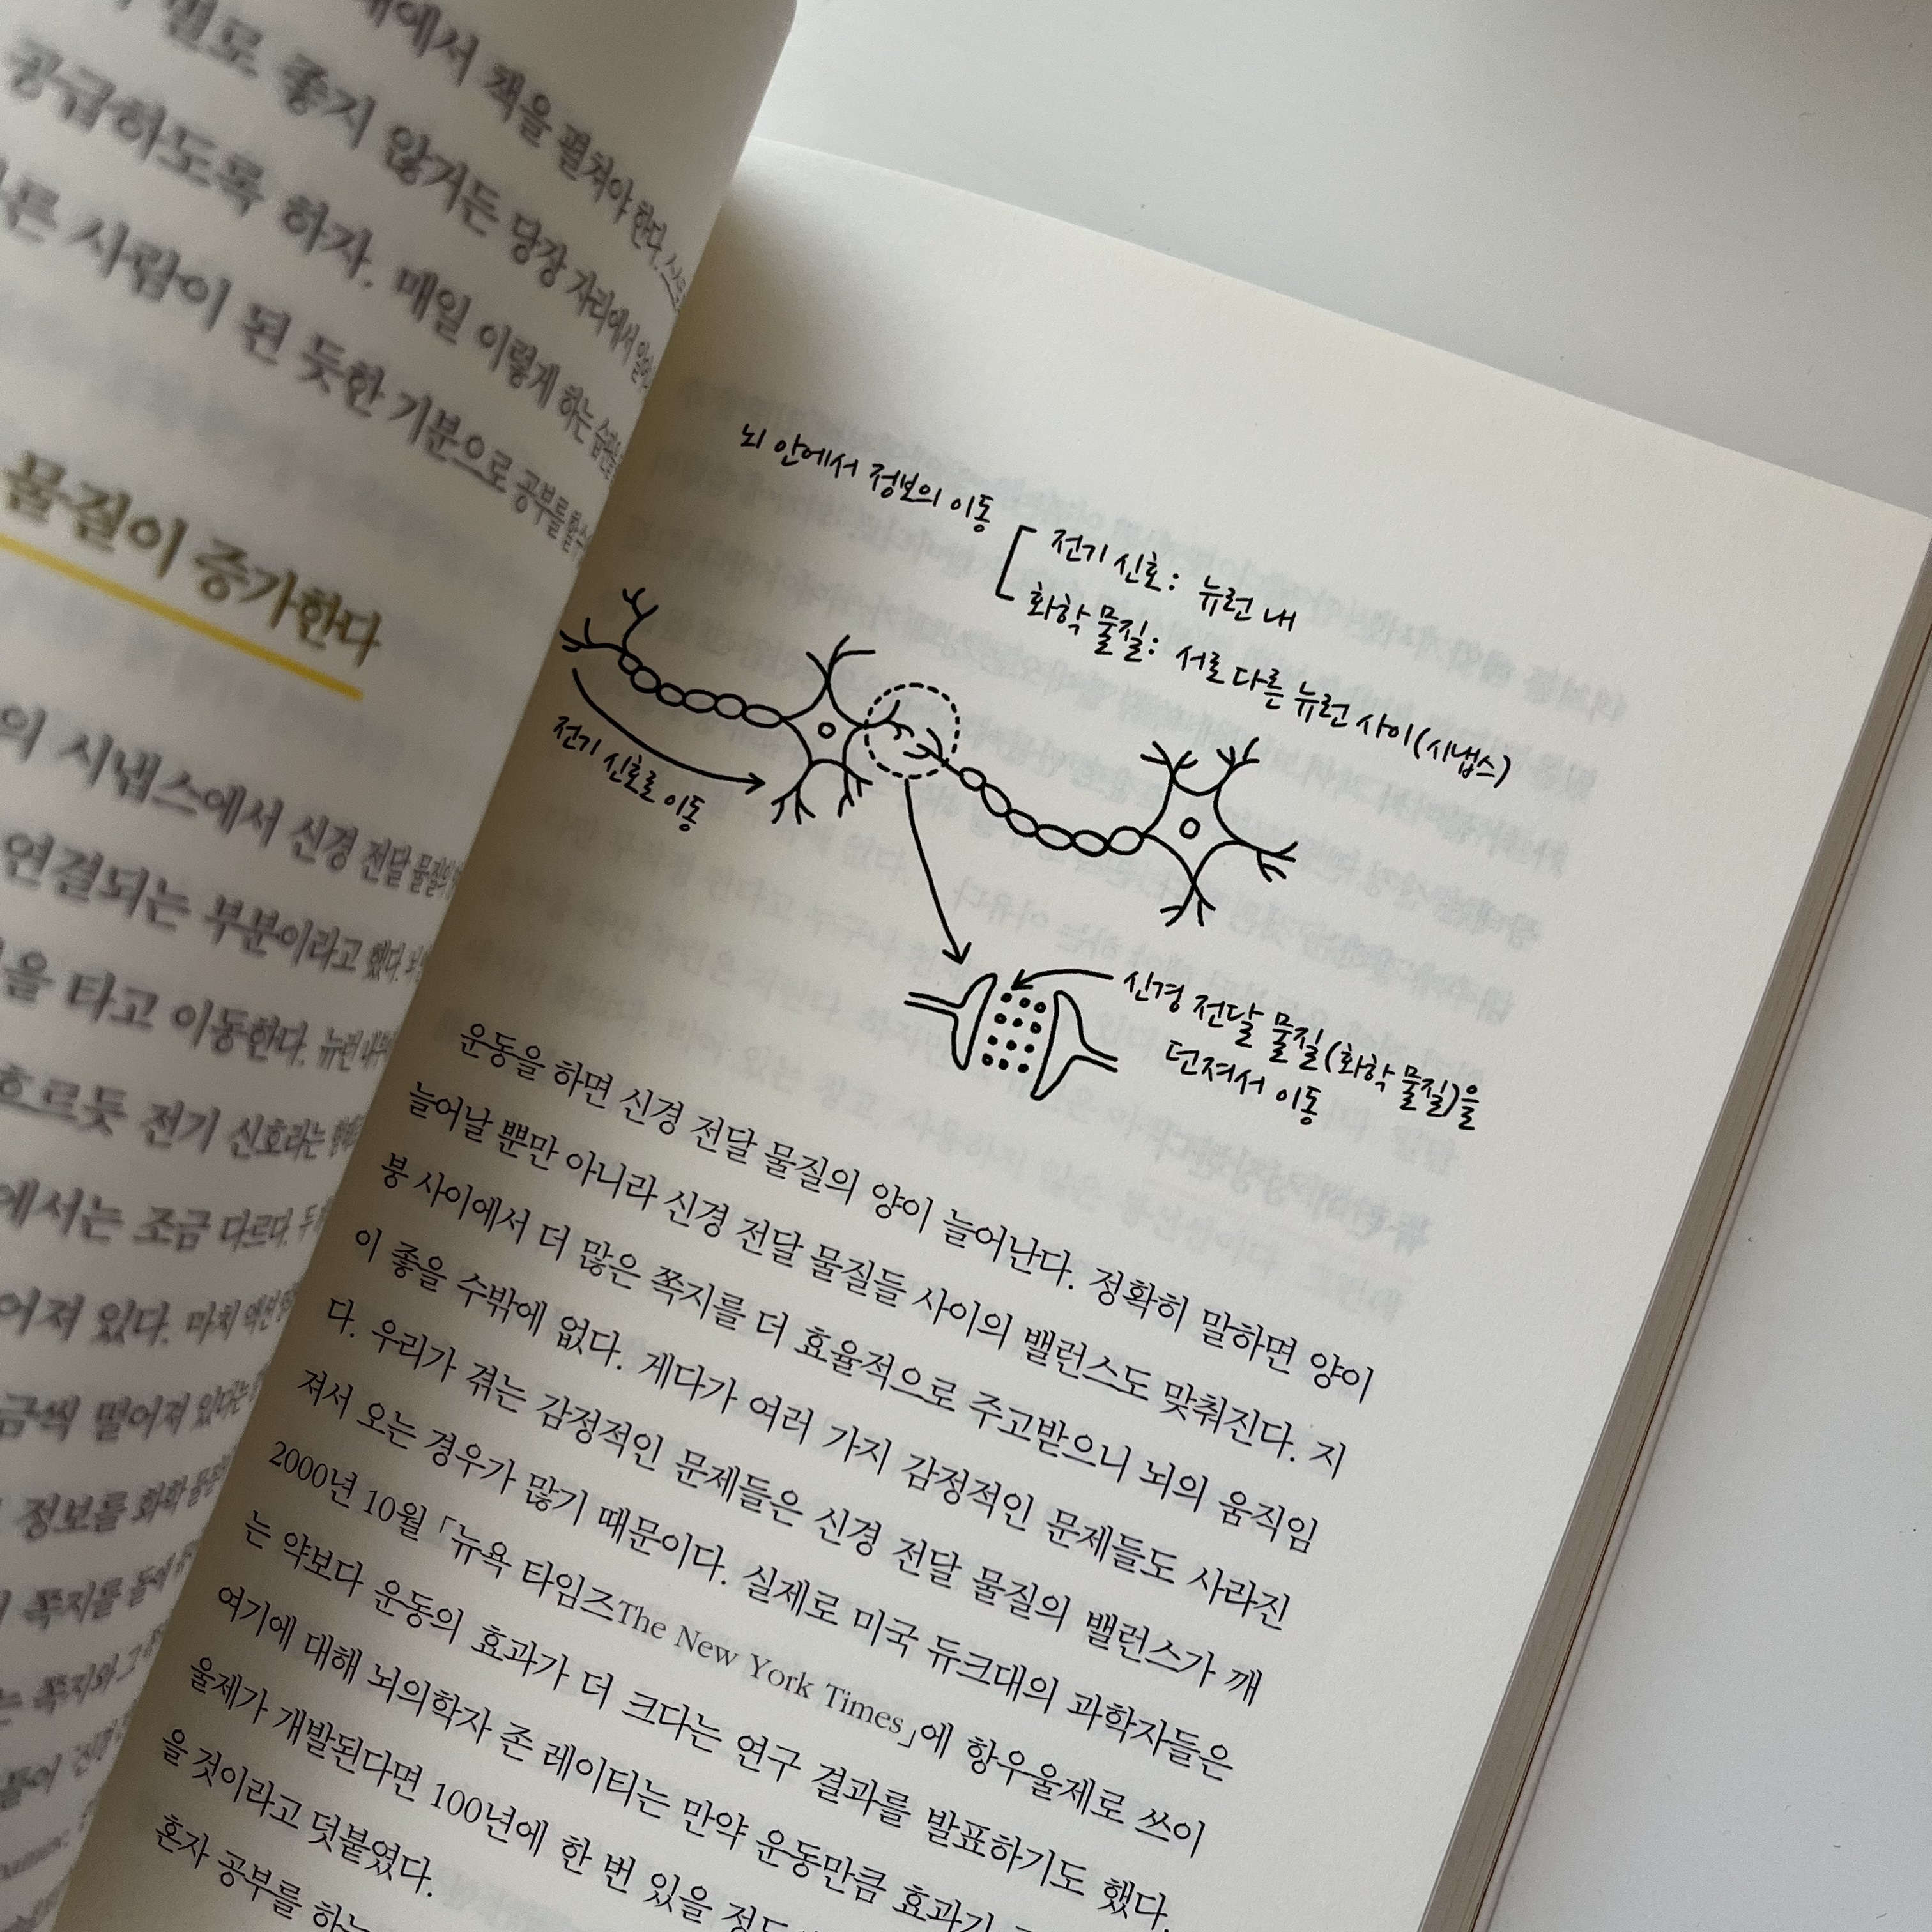 에서 책을 펼쳐야 한다.
별로 좋지 않거든 당장 자리에서
공급하도록 하자. 매일 이렇게 하는 습관을
사람이 된 듯한 기분으로 공부를
물질이 증가한다
의 시냅스에서 신경 전달 물질의
연결되는 부분이라고 했다.
을 타고 이동한다. 뉴런 내부
흐르듯 전기 신호라는
에서는 조금 다르다. 두
어져 있다. 마치
금씩 떨어져 있다는
정보를 화학 물질
쪽지를
는 쪽지와 그
뇌 안에서 정보의 이동
전기 신호: 뉴런 내
화학 물질: 서로 다른 뉴런 사이(시냅스)
전기 신호로 이동
신경 전달 물질(화학 물질)을
던져서 이동
운동을 하면 신경 전달 물질의 양이 늘어난다. 정확히 말하면 양이
늘어날 뿐만 아니라 신경 전달 물질들 사이의 밸런스도 맞춰진다. 지
붕 사이에서 더 많은 쪽지를 더 효율적으로 주고받으니 뇌의 움직임
이 좋을 수밖에 없다. 게다가 여러 가지 감정적인 문제들도 사라진
다. 우리가 겪는 감정적인 문제들은 신경 전달 물질의 밸런스가 깨
져서 오는 경우가 많기 때문이다. 실제로 미국 듀크대의 과학자들은
2000년 10월 「뉴욕 타임즈The New York Times」에 항우울제로 쓰이
는 약보다 운동의 효과가 더 크다는 연구 결과를 발표하기도 했다.
여기에 대해 뇌의학자 존 레이티는 만약 운동만큼 효과가
울제가 개발된다면 100년에 한 번 있을 정도
을 것이라고 덧붙였다.
혼자 공부를 하는